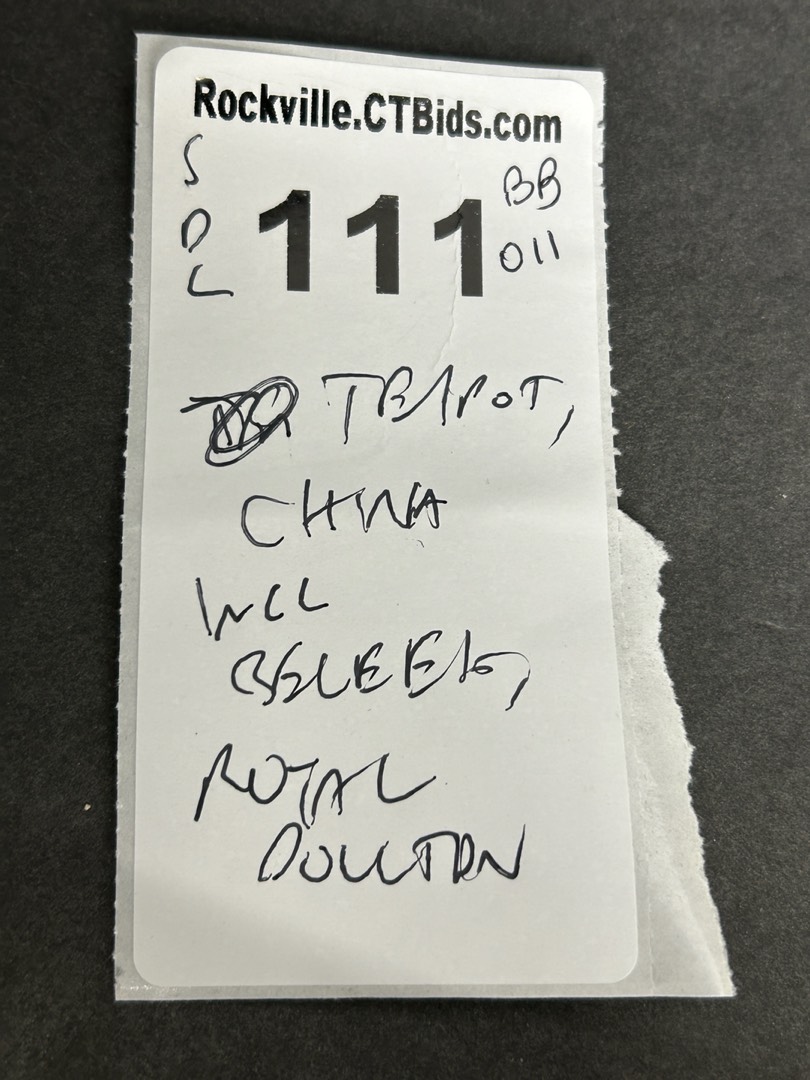 Rockville.CTBids.com
SDL
111
BB
011
TEAPOT,
CHINA
INCL
BELEEK,
ROYAL
DOULTON